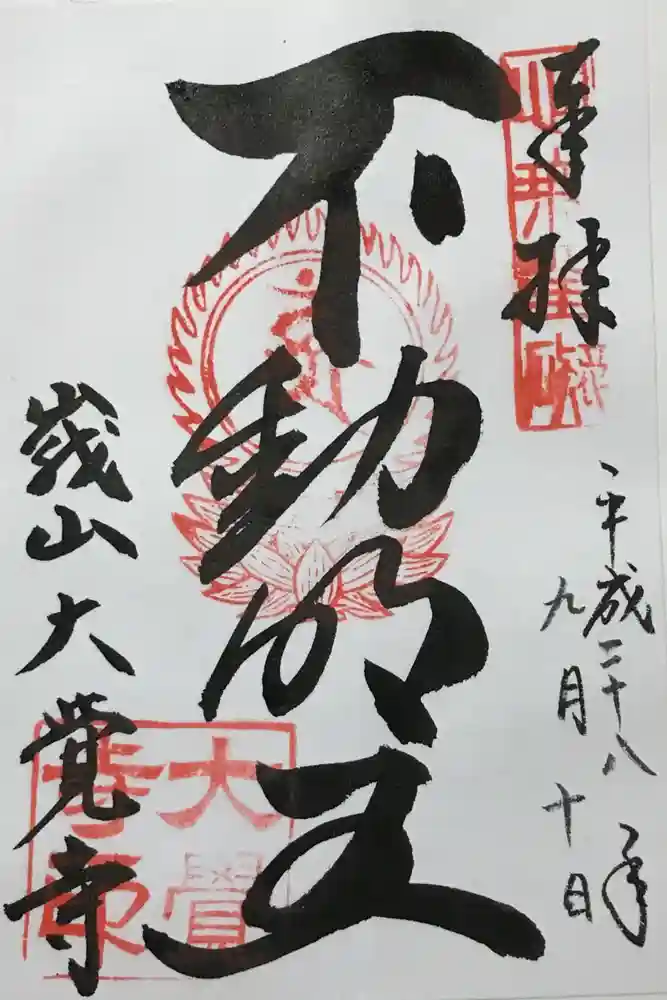 奉拝
平成二十八年
九月十日
不動明王
峩山大覺寺
大覺
寺印